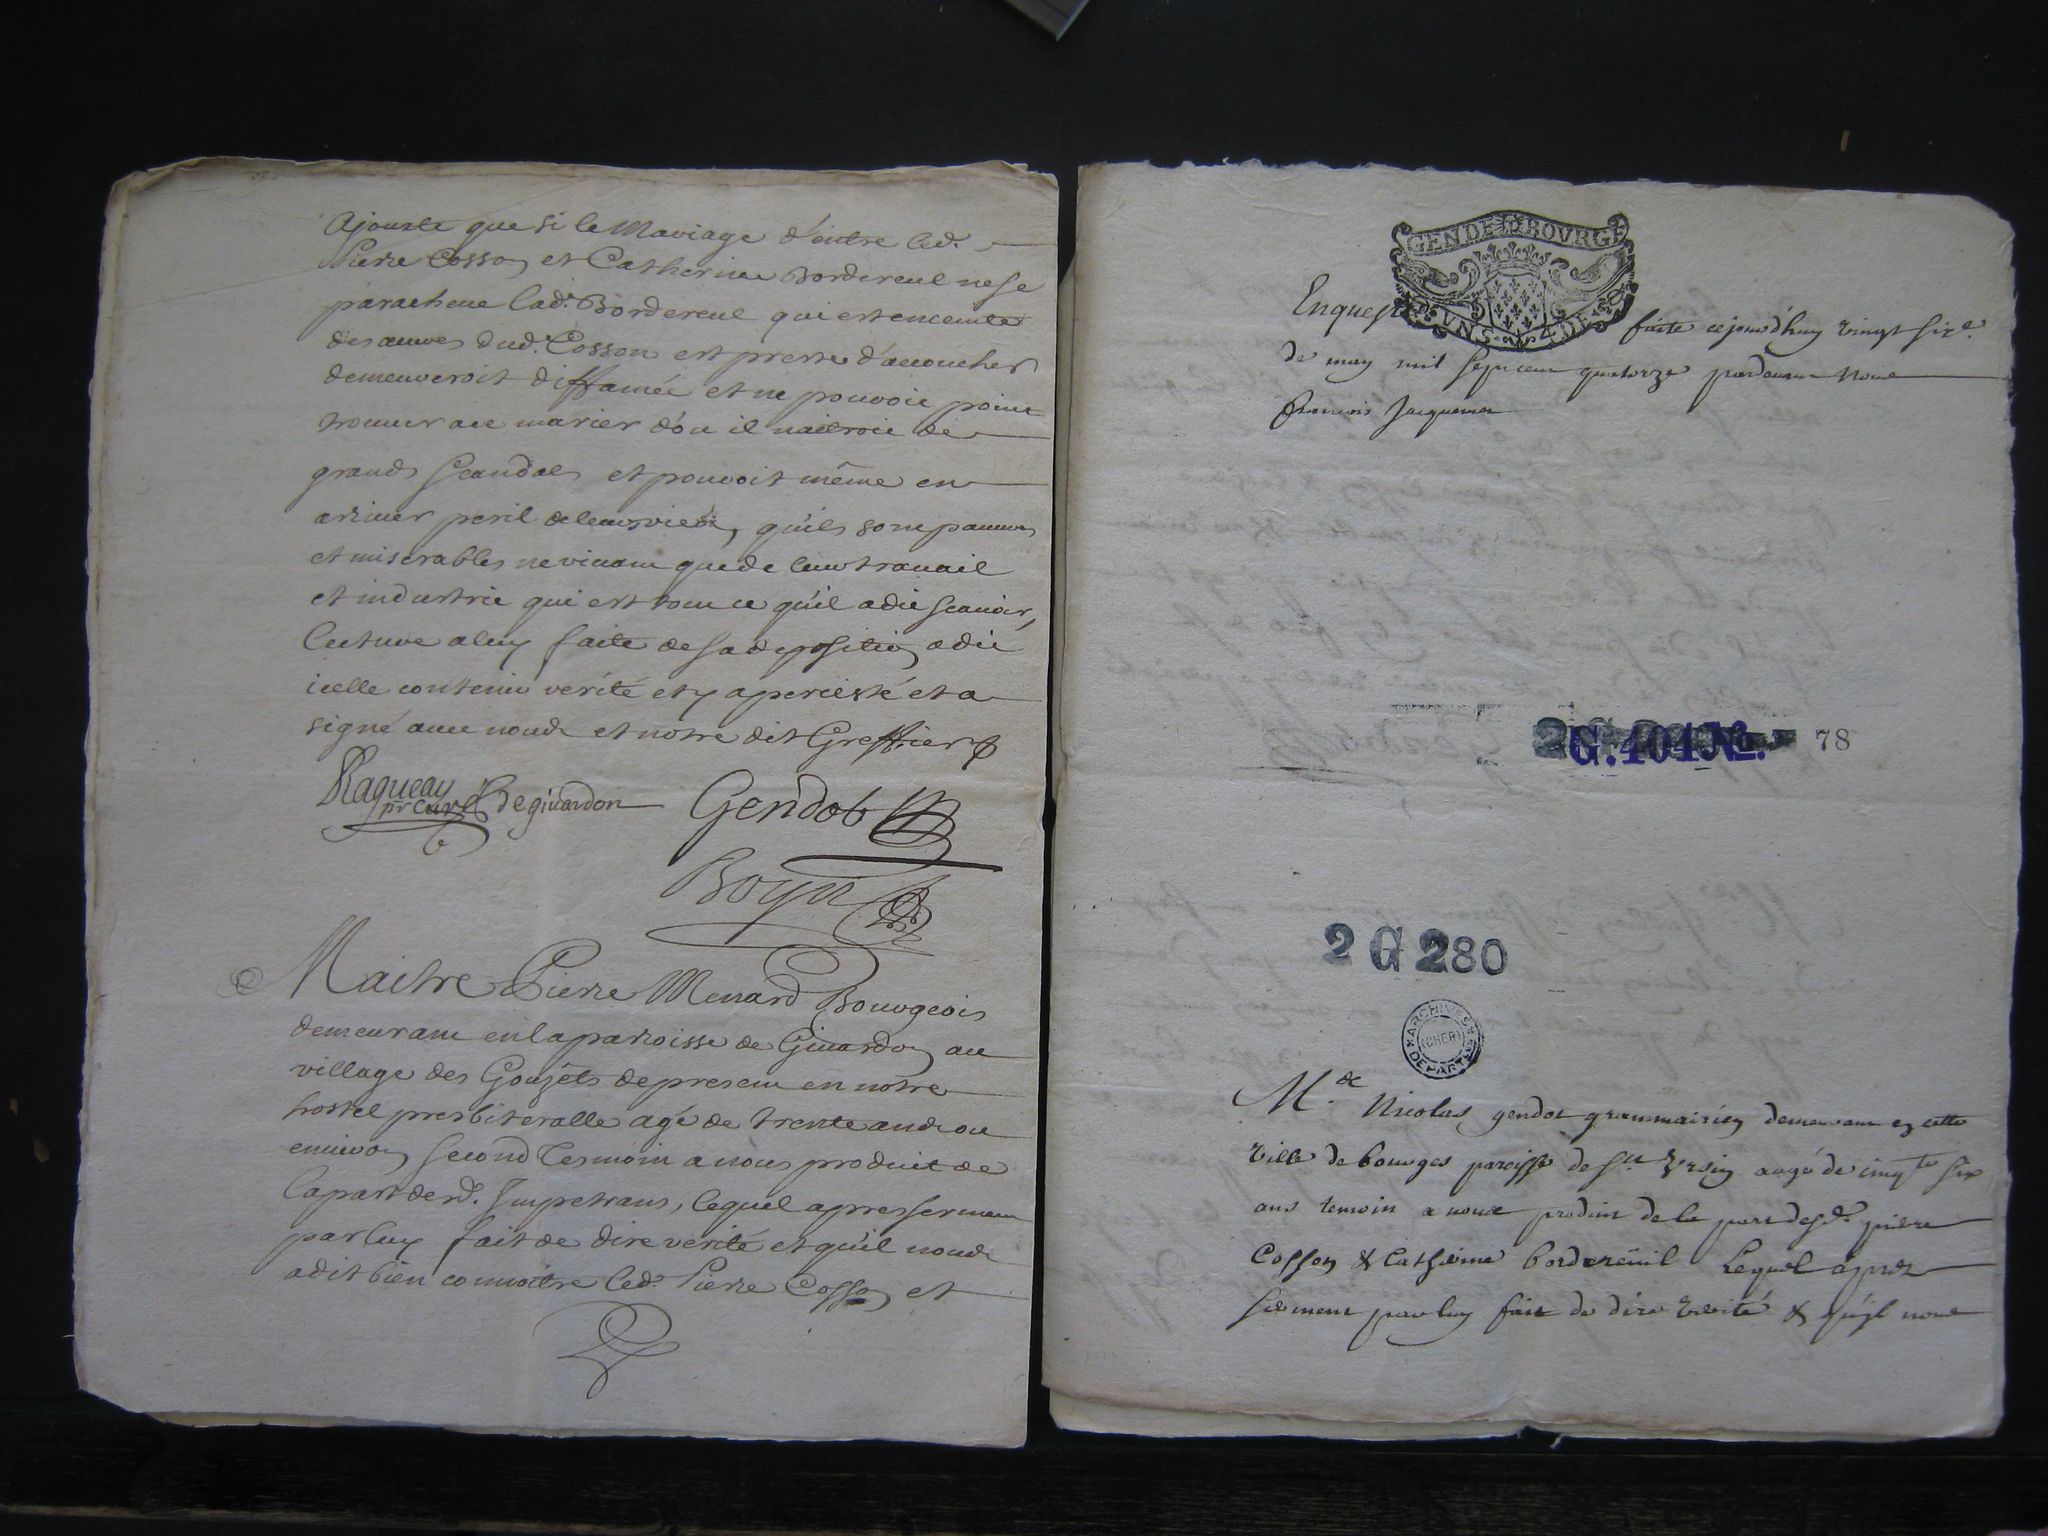 Ajouste que si le Mariage d'entre led.
Pierre Cosson et Catherine Bordereul ne se
paracheue lad. Bordereul qui est enceinte
des œuures dud. Cosson est preste d'accoucher
demeureroit diffamée et ne pouroit point
trouuer a ce marier d'ou il naitroit de
grands scandales et pouroit même en
ariuer peril de leurs vies, qu'ils sont pauures
et miserables ne viuant que de leur trauail
et industrie qui est tout ce qu'il a dit scauoir,
lecture a luy faite de sa deposition a dit
icelle contenir verité et y a persisté et a
signé auec nous et notre dit Greffier
Raqueau
pr Curé de giuardon Gendob
Boyn
Maitre Pierre Menard Bourgeois
demeurant en la paroisse de Giuardon au
village des Goujets de present en notre
hostel presbiteralle agé de trente ans ou
enuiron second tesmoin a nous produit de
la part desd. Impetrans, lequel apres serment
par luy fait de dire verité et qu'il nous
a dit bien connoitre led. Pierre Cosson et
GEN DE BOVRGE
VN S 4 D
Enqueste faite cejourd'huy vingt six.e
de may mil sept cent quatorze pardeuant Nous
francois Jacquemet
2 G. 404 No. 78
2 G 280
ARCHIVES
(CHER)
DEPARTles
M.de Nicolas gendot grammairien demeurant en cette
ville de bourges paroisse de St Vrsin aagé de cinqte six
ans temoin a nous produit de la part desd. pierre
Cosson & Catherine bordereuil Lequel apres
serment par luy fait de dire verité & qu'il nous